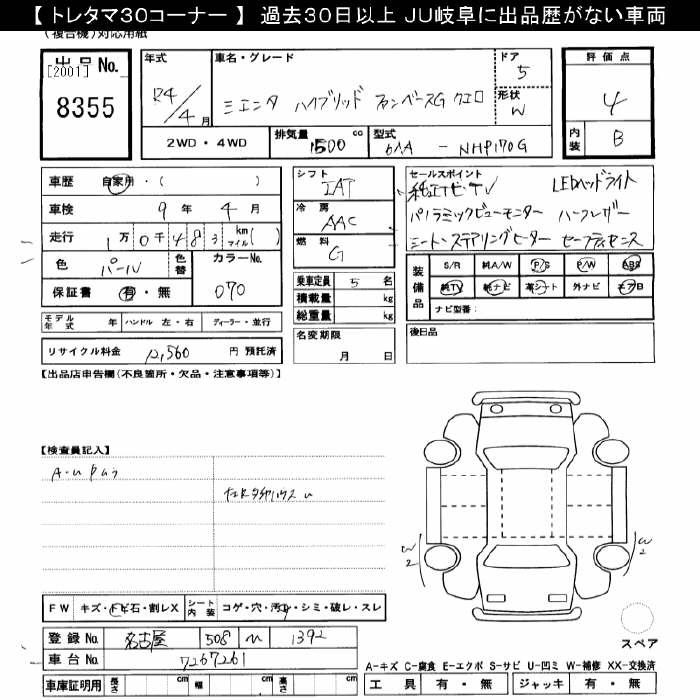 【 トレタマ30コーナー 】 過去30日以上 JU岐阜に出品歴がない車両
(複合機)対応用紙
出品No.
[2001]
8355
年式
R4/4月
車名・グレード
シエンタ ハイブリッド ファンベースG クエロ
ドア
5
形状
W
評価点
4
内装
B
2WD・4WD
排気量 1500 cc
型式 6AA - NHP170G
車歴 自家用・( )
車検 9年 4月
走行 1万0千483 km マイル( )
色 パール 色替 カラーNo. 070
保証書 有・無
モデル年式 年 ハンドル 左・右 ディーラー・並行
リサイクル料金 12,560 円 預託済
シフト
IAT
冷房
AAC
燃料
G
乗車定員 5 名
積載量 kg
総重量 kg
名変期限
月 日
セールスポイント
純正ナビTV LEDヘッドライト
パノラミックビューモニター ハーフレザー
シート・ステアリングヒーター セーフティセンス
装備品
S/R 純A/W P/S P/W ABS
純TV 純ナビ 革シート 外ナビ エアB
ナビ型番:
後日品
【出品店申告欄(不良箇所・欠品・注意事項等)】
【検査員記入】
A・U
FW キズ・トビ石・割レX シート内装 コゲ・穴・汚レ・シミ・破レ・スレ
登録No. 名古屋 508 1392
車台No. 7267261
車庫証明用 長さ cm 幅 cm 高さ cm
W2
W2
スペア
A-キズ C-腐食 E-エクボ S-サビ U-凹ミ W-補修 XX-交換済
工具 有・無 ジャッキ 有・無